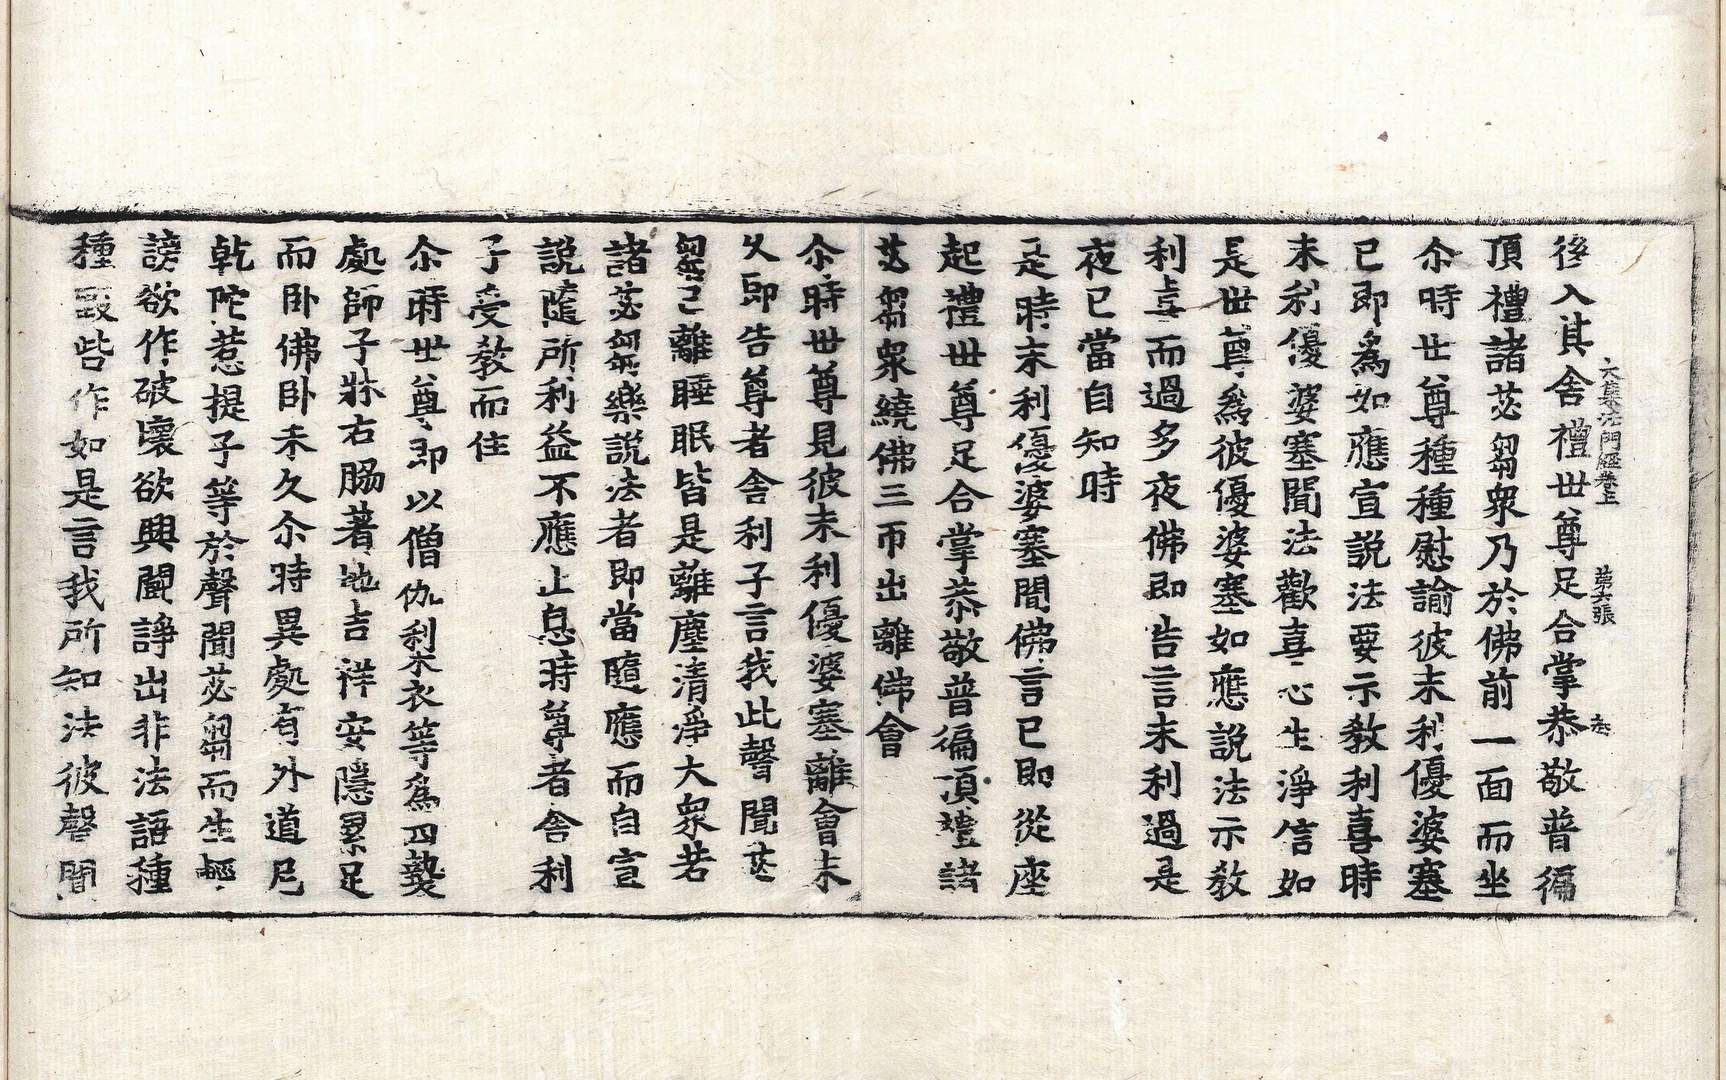 後入其舍禮世尊足合掌恭敬普徧
頂禮諸苾芻衆乃於佛前一面而坐
尒時世尊種種慰諭彼末利優婆塞
已即爲如應宣說法要示教利喜時
末利優婆塞聞法歡喜心生淨信如
是世尊爲彼優婆塞如應說法示教
利喜而過多夜佛即告言末利過是
夜已當自知時
是時末利優婆塞聞佛言已即從座
起禮世尊足合掌恭敬普徧頂禮諸
苾芻衆繞佛三帀出離佛會
尒時世尊見彼末利優婆塞離會未
久即告尊者舍利子言我此聲聞苾
芻已離睡眠皆是離塵清淨大衆若
諸苾芻樂說法者即當隨應而自宣
說隨所利益不應止息時尊者舍利
子受教而住
尒時世尊即以僧伽利衣等爲四褺
處師子牀右脇著地吉祥安隱累足
而卧佛卧未久尒時異處有外道尼
乾陀惹提子等於聲聞苾芻而生輕
謗欲作破壞欲興鬪諍出非法語種
種毀呰作如是言我所知法彼聲聞
大集法門經卷上 第六張